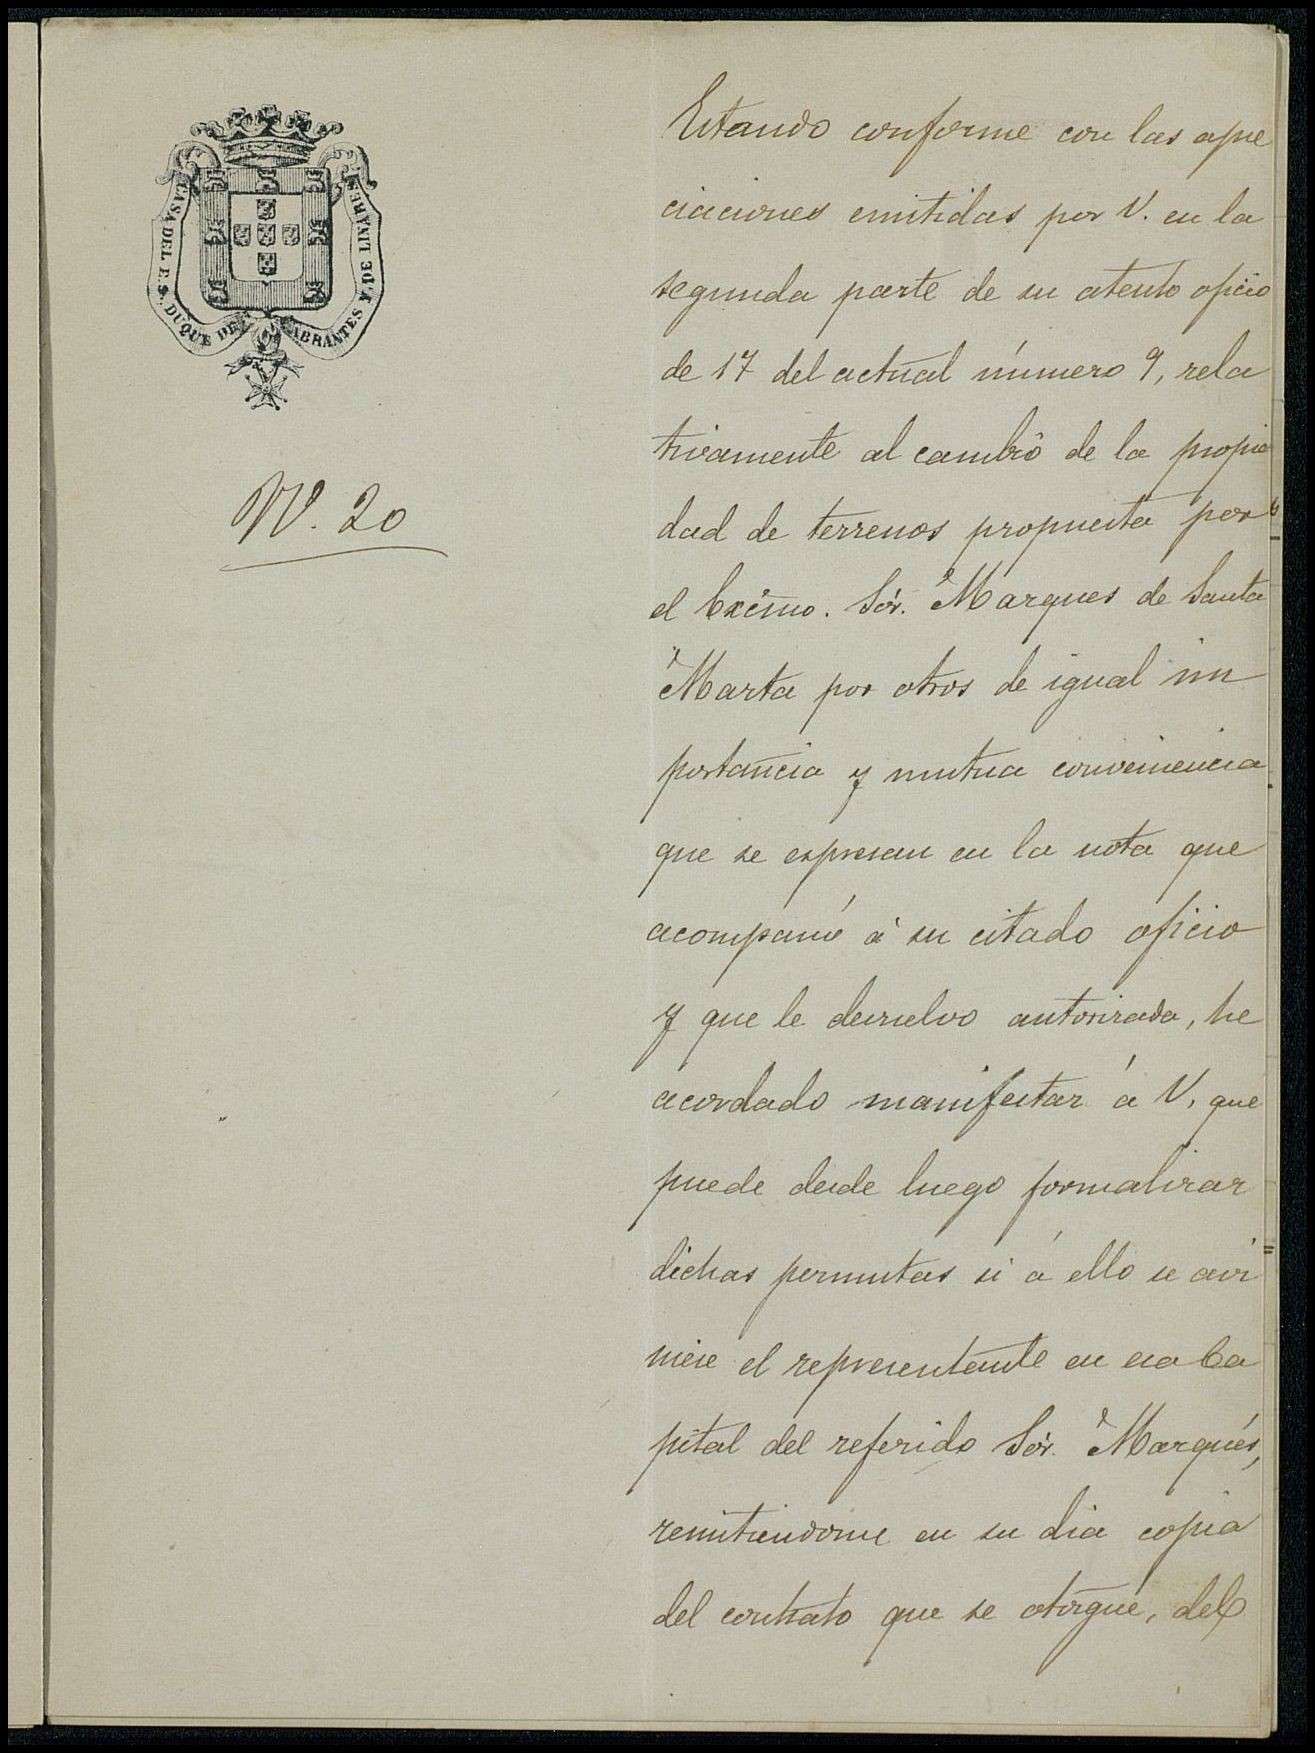 CASA DEL E. S. DUQUE DE ABRANTES Y DE LINARES
N.º 20
Estando conforme con las apre
ciaciones emitidas por V. en la
segunda parte de su atento oficio
de 17 del actual número 9, rela
tivamente al cambio de la propie
dad de terrenos propuesta por
el Excmo. Sór. Marques de Santa
Marta por otros de igual im
portancia y mutua conveniencia
que se espresan en la nota que
acompañé á su citado oficio
y que le devuelvo autorizada, he
acordado manifestar á V. que
puede desde luego formalizar
dichas permutas si á ello se avi
niese el representante en esa Ca
pital del referido Sór. Marqués,
remitiendome en su dia copia
del contrato que se otorgue, del